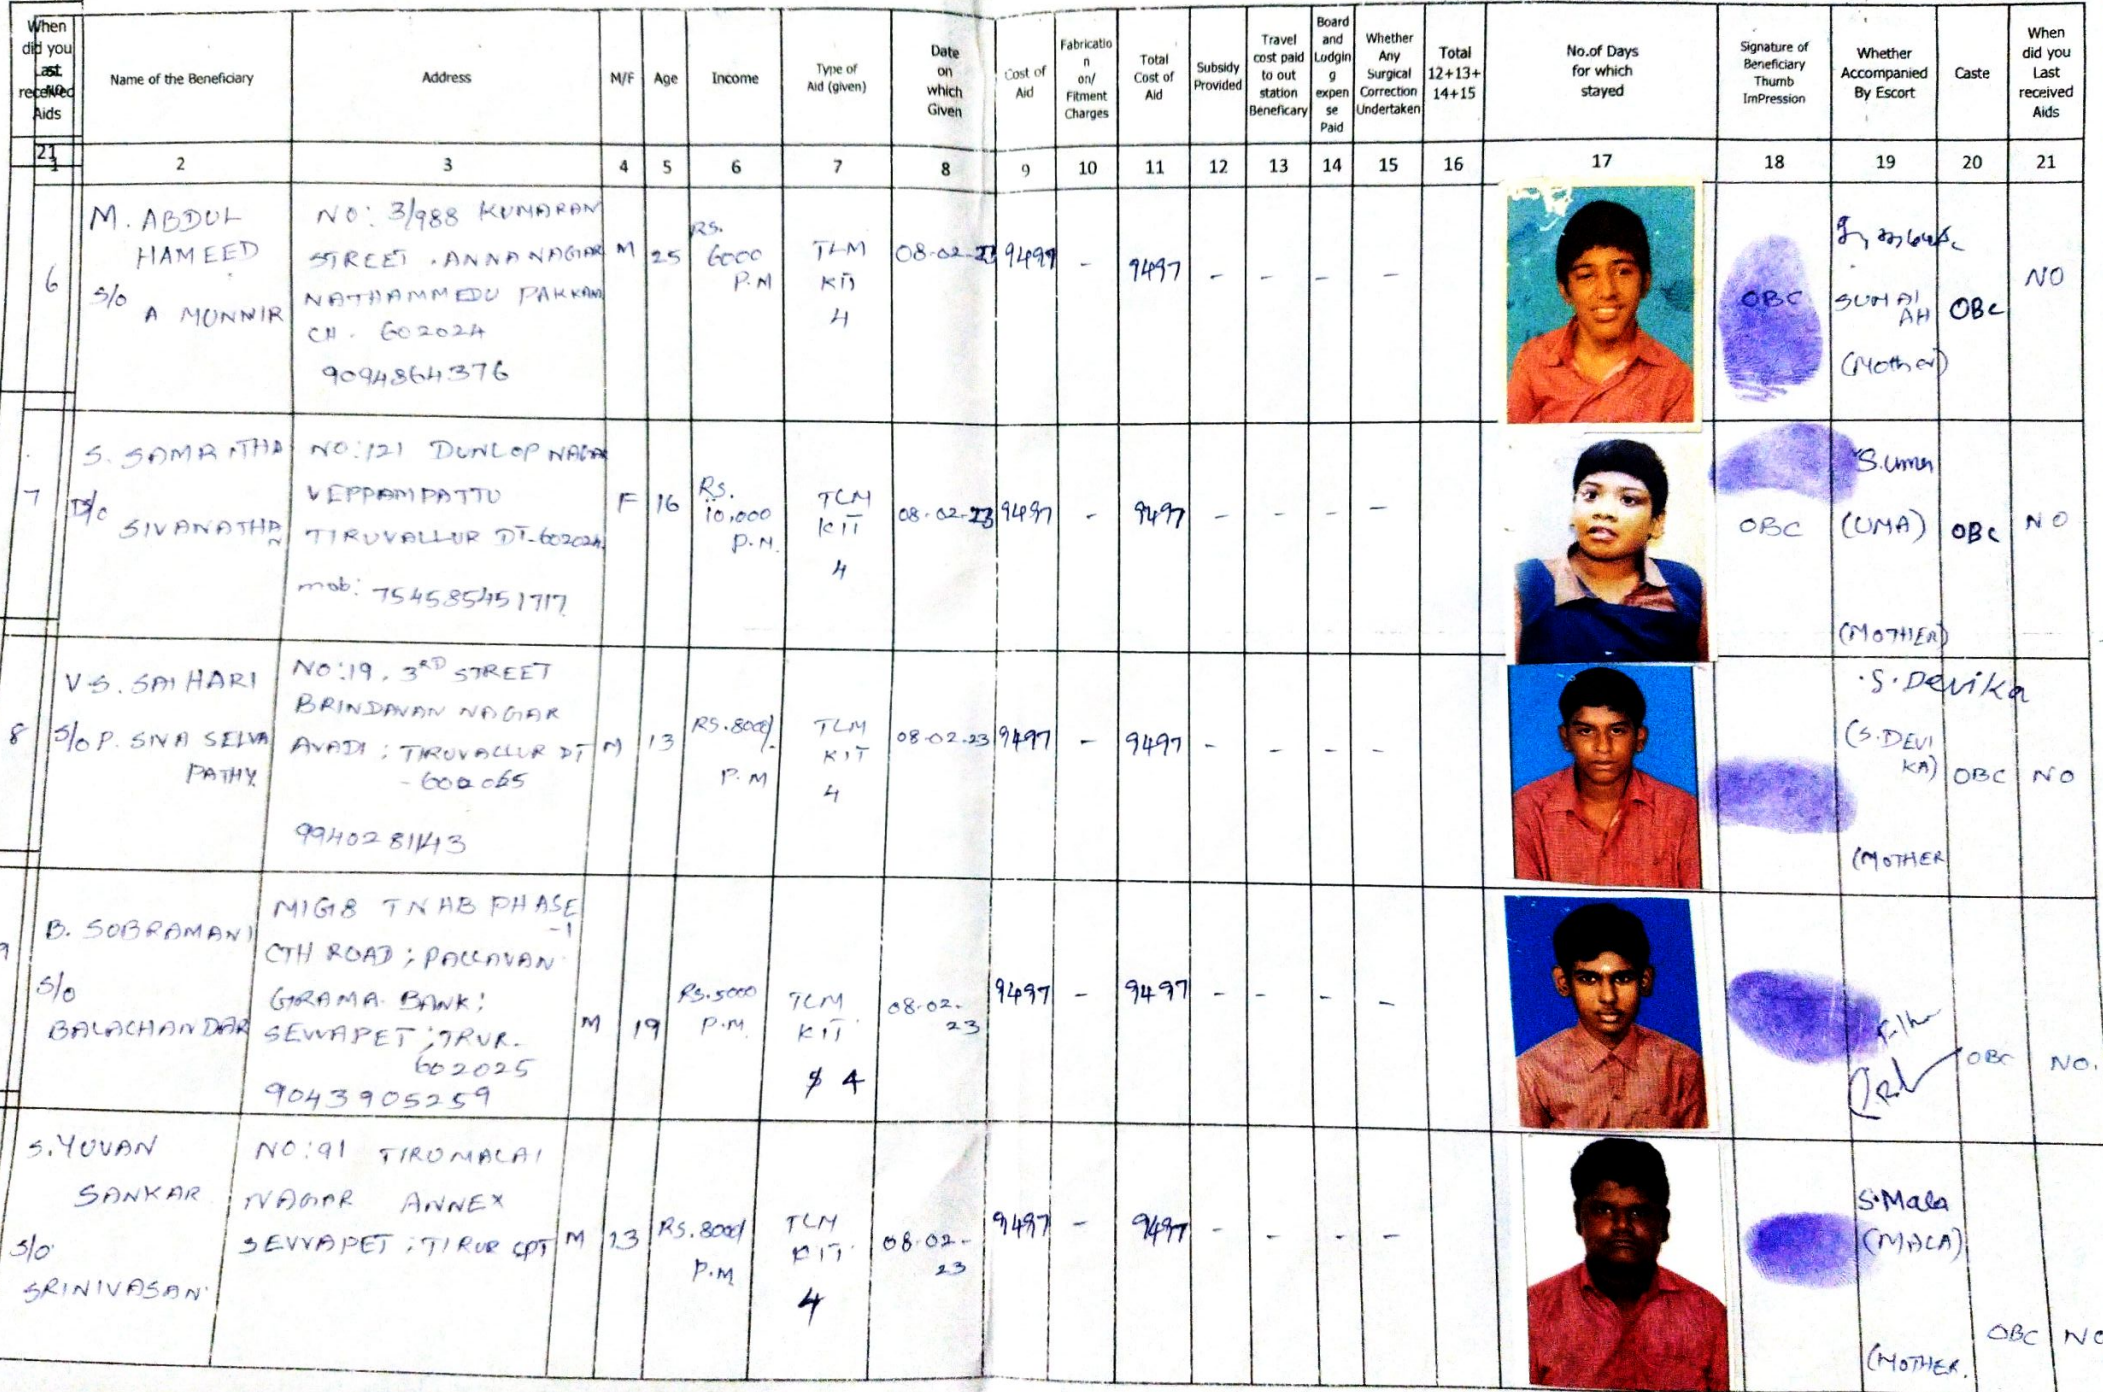 When
did you
Last
received
Aids
Name of the Beneficiary
Address
M/F
Age
Income
Type of
Aid (given)
Date
on
which
Given
Cost of
Aid
Fabricatio
n
on/
Fitment
Charges
Total
Cost of
Aid
Subsidy
Provided
Travel
cost paid
to out
station
Beneficary
Board
and
Lodgin
g
expen
se
Paid
Whether
Any
Surgical
Correction
Undertaken
Total
12+13+
14+15
No.of Days
for which
stayed
Signature of
Beneficiary
Thumb
ImPression
Whether
Accompanied
By Escort
Caste
When
did you
Last
received
Aids
21
1 2 3 4 5 6 7 8 9 10 11 12 13 14 15 16 17 18 19 20 21
6
M. ABDUL
HAMEED
S/o
A MUNNIR
NO: 3/988 KUMARAN
STREET . ANNA NAGAR
NATHAMMEDU PAKKAM
CH. 602024
9094864376
M
25
RS.
6000
P.M
TLM
KIT
4
08-02-23
9497
-
9497
- - - -
OBC
SUMAI
AH
(Mother)
OBC
NO
7
S. SAMRITHA
D/o
SIVANATHA
N
NO:121 DUNLOP NAGAR
VEPPAMPATTU
TIRUVALLUR DT-602024
mob: 754585451717
F
16
RS.
10,000
P.M.
TLM
KIT
4
08-02-23
9497
-
9497
- - - -
OBC
S.Uma
(UMA)
(MOTHER)
OBC
NO
8
V S. SAI HARI
S/o P. SIVA SELVA
PATHY
NO:19, 3RD STREET
BRINDAVAN NAGAR
AVADI ; TIRUVALLUR DT
- 600065
9940281143
M
13
RS.8000/
P.M
TLM
KIT
4
08-02-23
9497
-
9497
- - - -
S.Devika
(S.DEVI
KA)
(MOTHER
OBC
NO
9
B. SUBRAMANI
S/o
BALACHANDAR
MIG8 TNHB PHASE
-1
CTH ROAD ; PALLAVAN
GRAMA BANK ;
SEVVAPET ; TRUR.
602025
9043905259
M
19
RS.5000
P.M.
TLM
KIT
4
08-02-
23
9497
-
9497
- - - -
OBC
NO.
S.YUVAN
SANKAR
S/o
SRINIVASAN
NO:91 TIRUMALAI
NAGAR ANNEX
SEVVAPET ; TIRUR
M
13
RS.8000/
P.M
TLM
KIT
4
08-02-
23
9497
-
9497
- - - -
S.Mala
(MALA)
(MOTHER.
OBC
NO